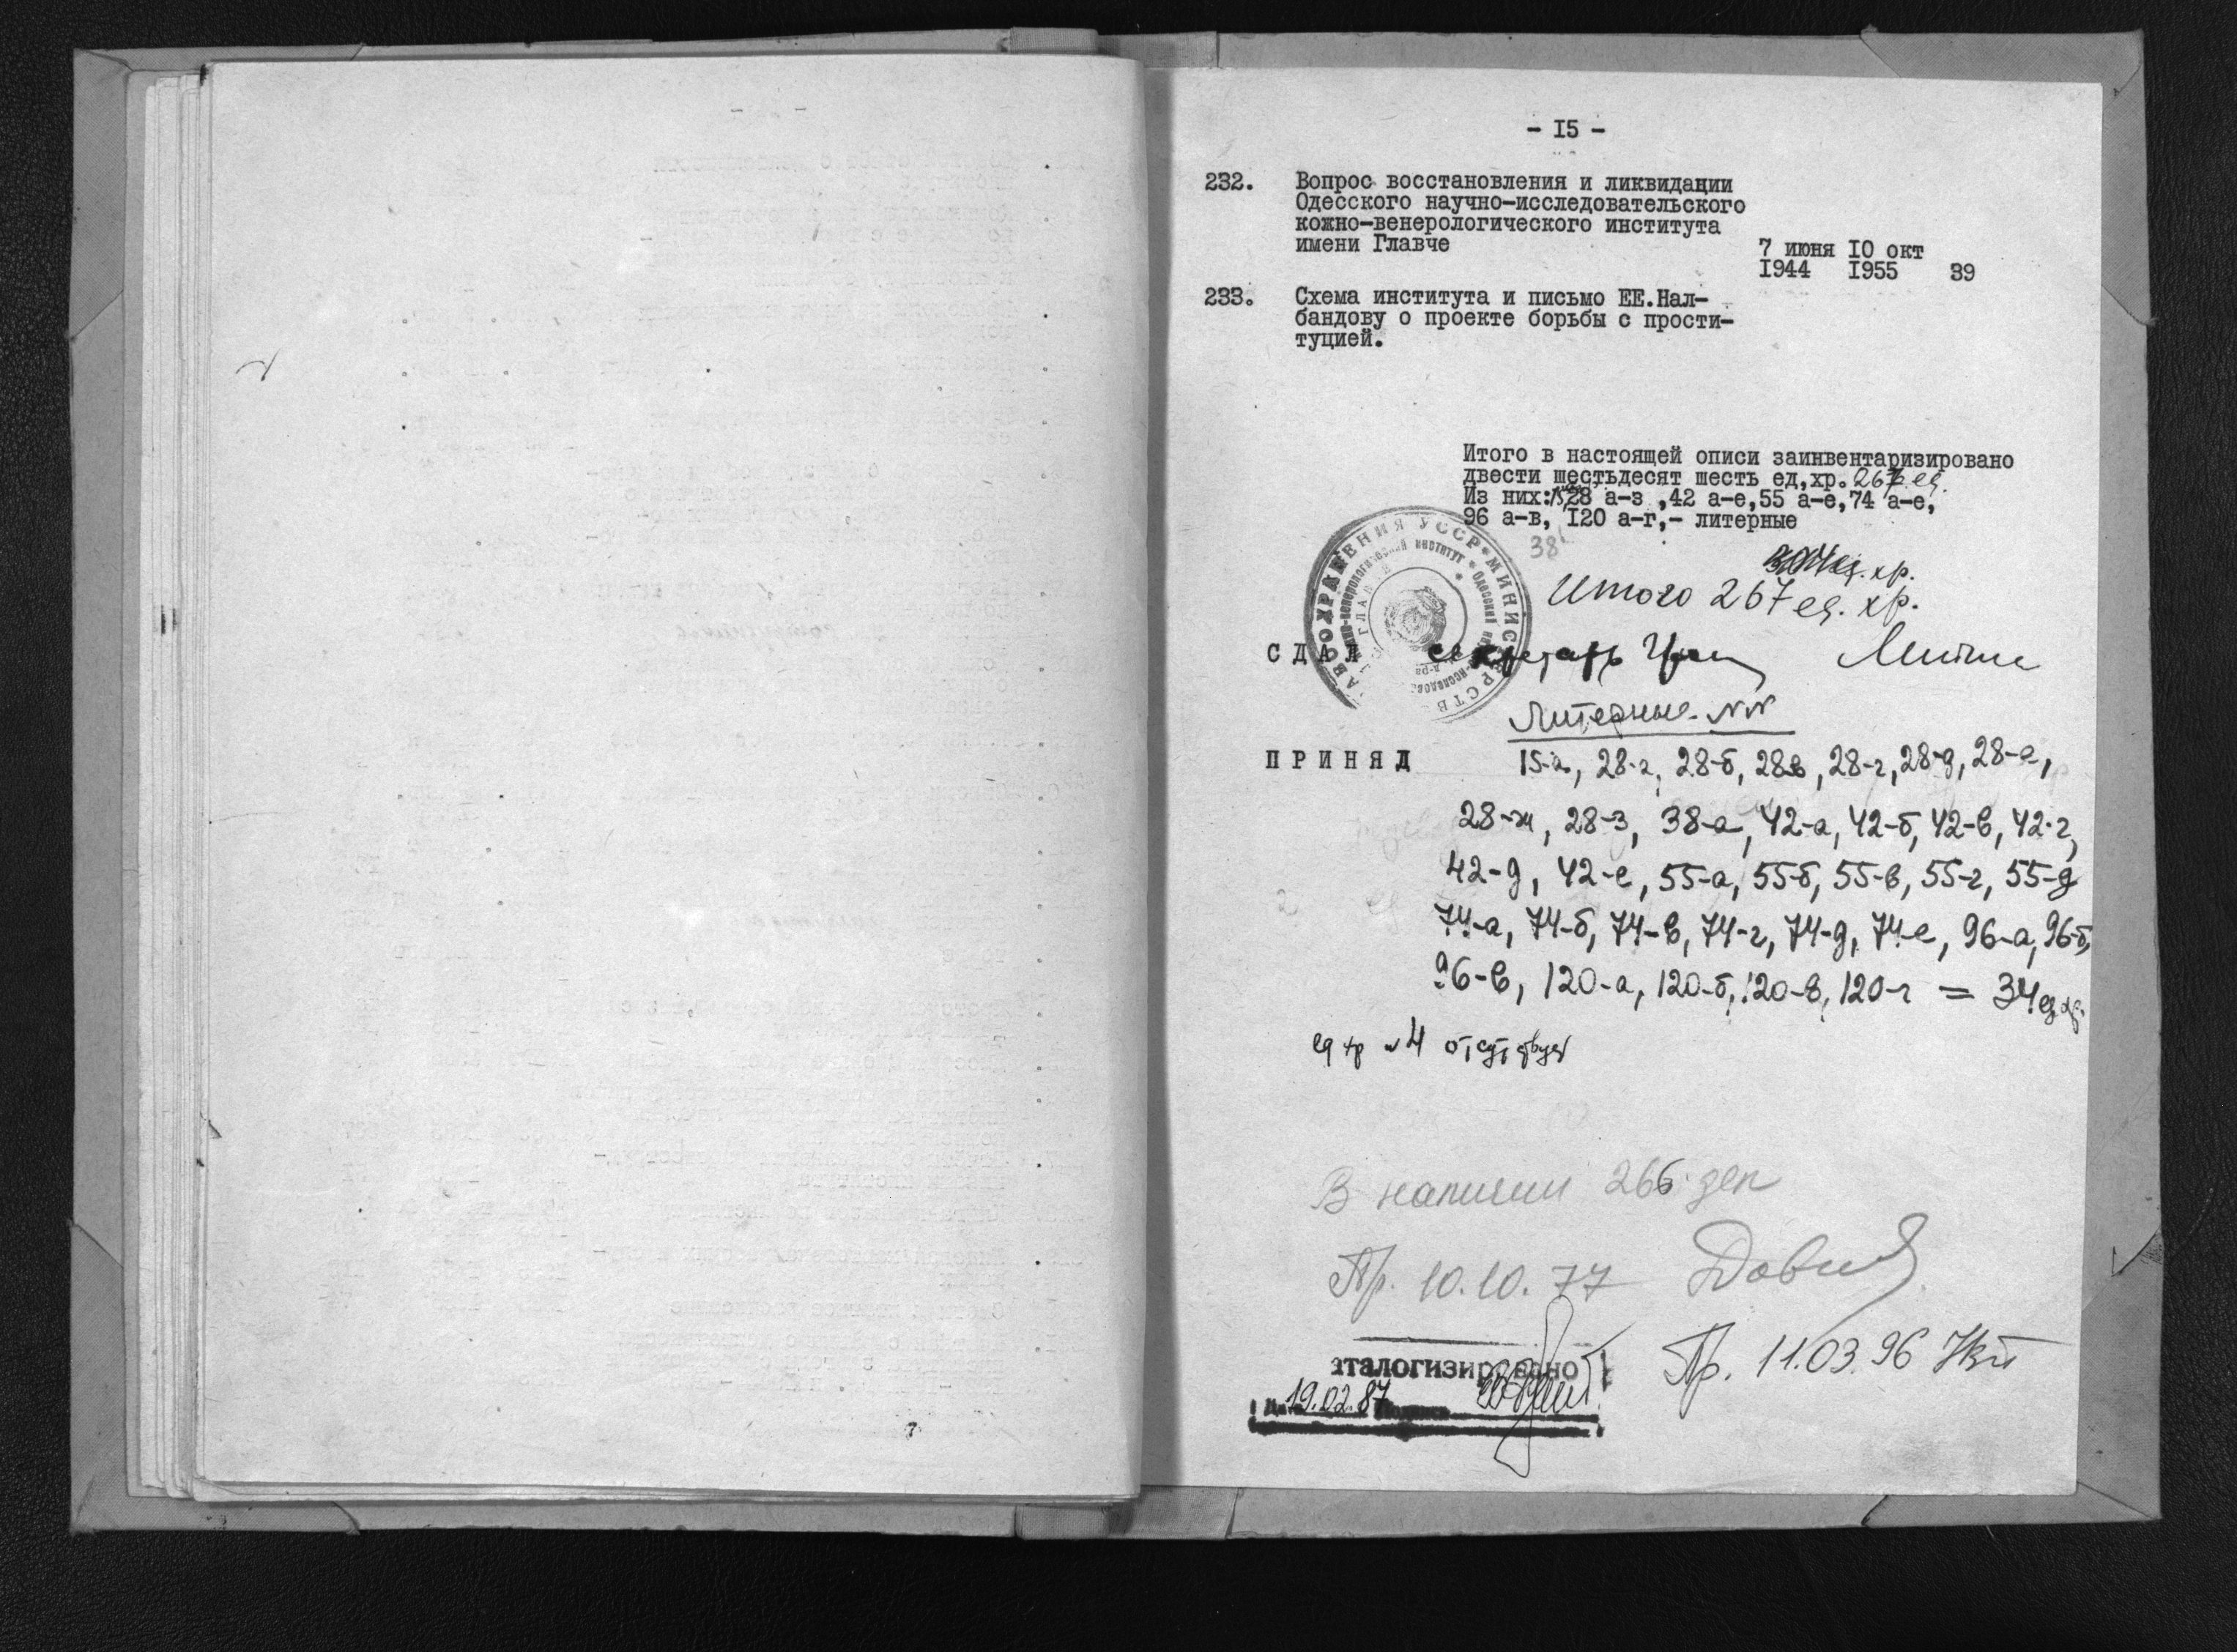 - I5 -
232. Вопрос восстановления и ликвидации
Одесского научно-исследовательского
кожно-венерологического института
имени Главче
7 июня I0 окт
I944 I955 39
233. Схема института и письмо ЕЕ.Нал-
бандову о проекте борьбы с прости-
туцией.
Итого в настоящей описи заинвентаризировано
двести шестьдесят шесть ед,хр. 267 ед.
Из них: 28 а-з ,42 а-е,55 а-е,74 а-е,
96 а-в, I20 а-г,- литерные
38
ед. хр.
Итого 267 ед. хр.
С Д А Л секретарь
Литерные NN
П Р И Н Я Л
15-а, 28-а, 28-б, 28в, 28-г, 28-д, 28-е,
28-ж, 28-з, 38-а, 42-а, 42-б, 42-в, 42-г,
42-д, 42-е, 55-а, 55-б, 55-в, 55-г, 55-д
74-а, 74-б, 74-в, 74-г, 74-д, 74-е, 96-а, 96-б,
96-в, 120-а, 120-б, 120-в, 120-г = 34 ед хр.
ед хр N 4 отсутствует
В наличии 266 дел
Пр. 10.10.77
Пр. 11.03.96
аталогизировано
19.02.87